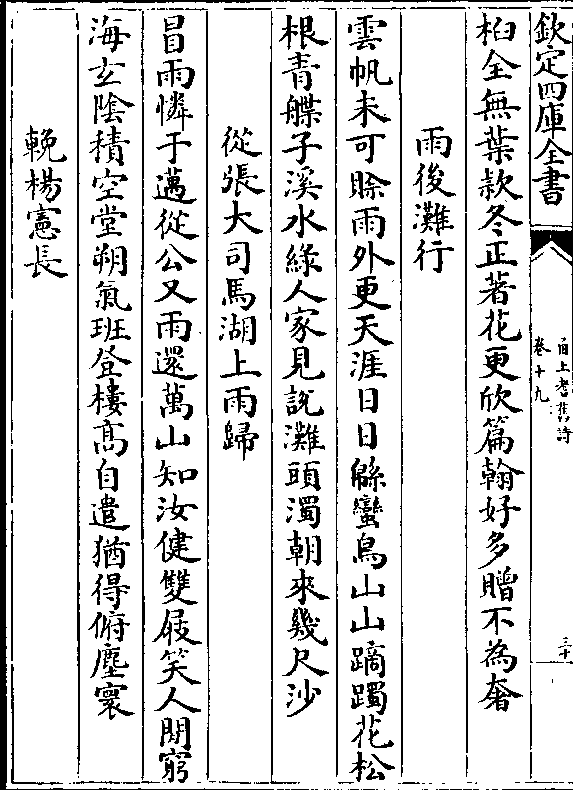 欽定四庫全書
甬上耆舊詩
卷十九
三十
桕全無葉款冬正著花更欣篇翰好多贈不為奢
雨後灘行
雲帆未可賒雨外更天涯日日緜蠻鳥山山躑躅花松
根青艓子溪水綠人家見說灘頭濁朝來幾尺沙
從張大司馬湖上雨歸
冒雨憐于邁從公又雨還萬山知汝健雙屐笑人閒窮
海玄陰積空堂朔氣班登樓高自遣猶得俯塵寰
輓楊憲長